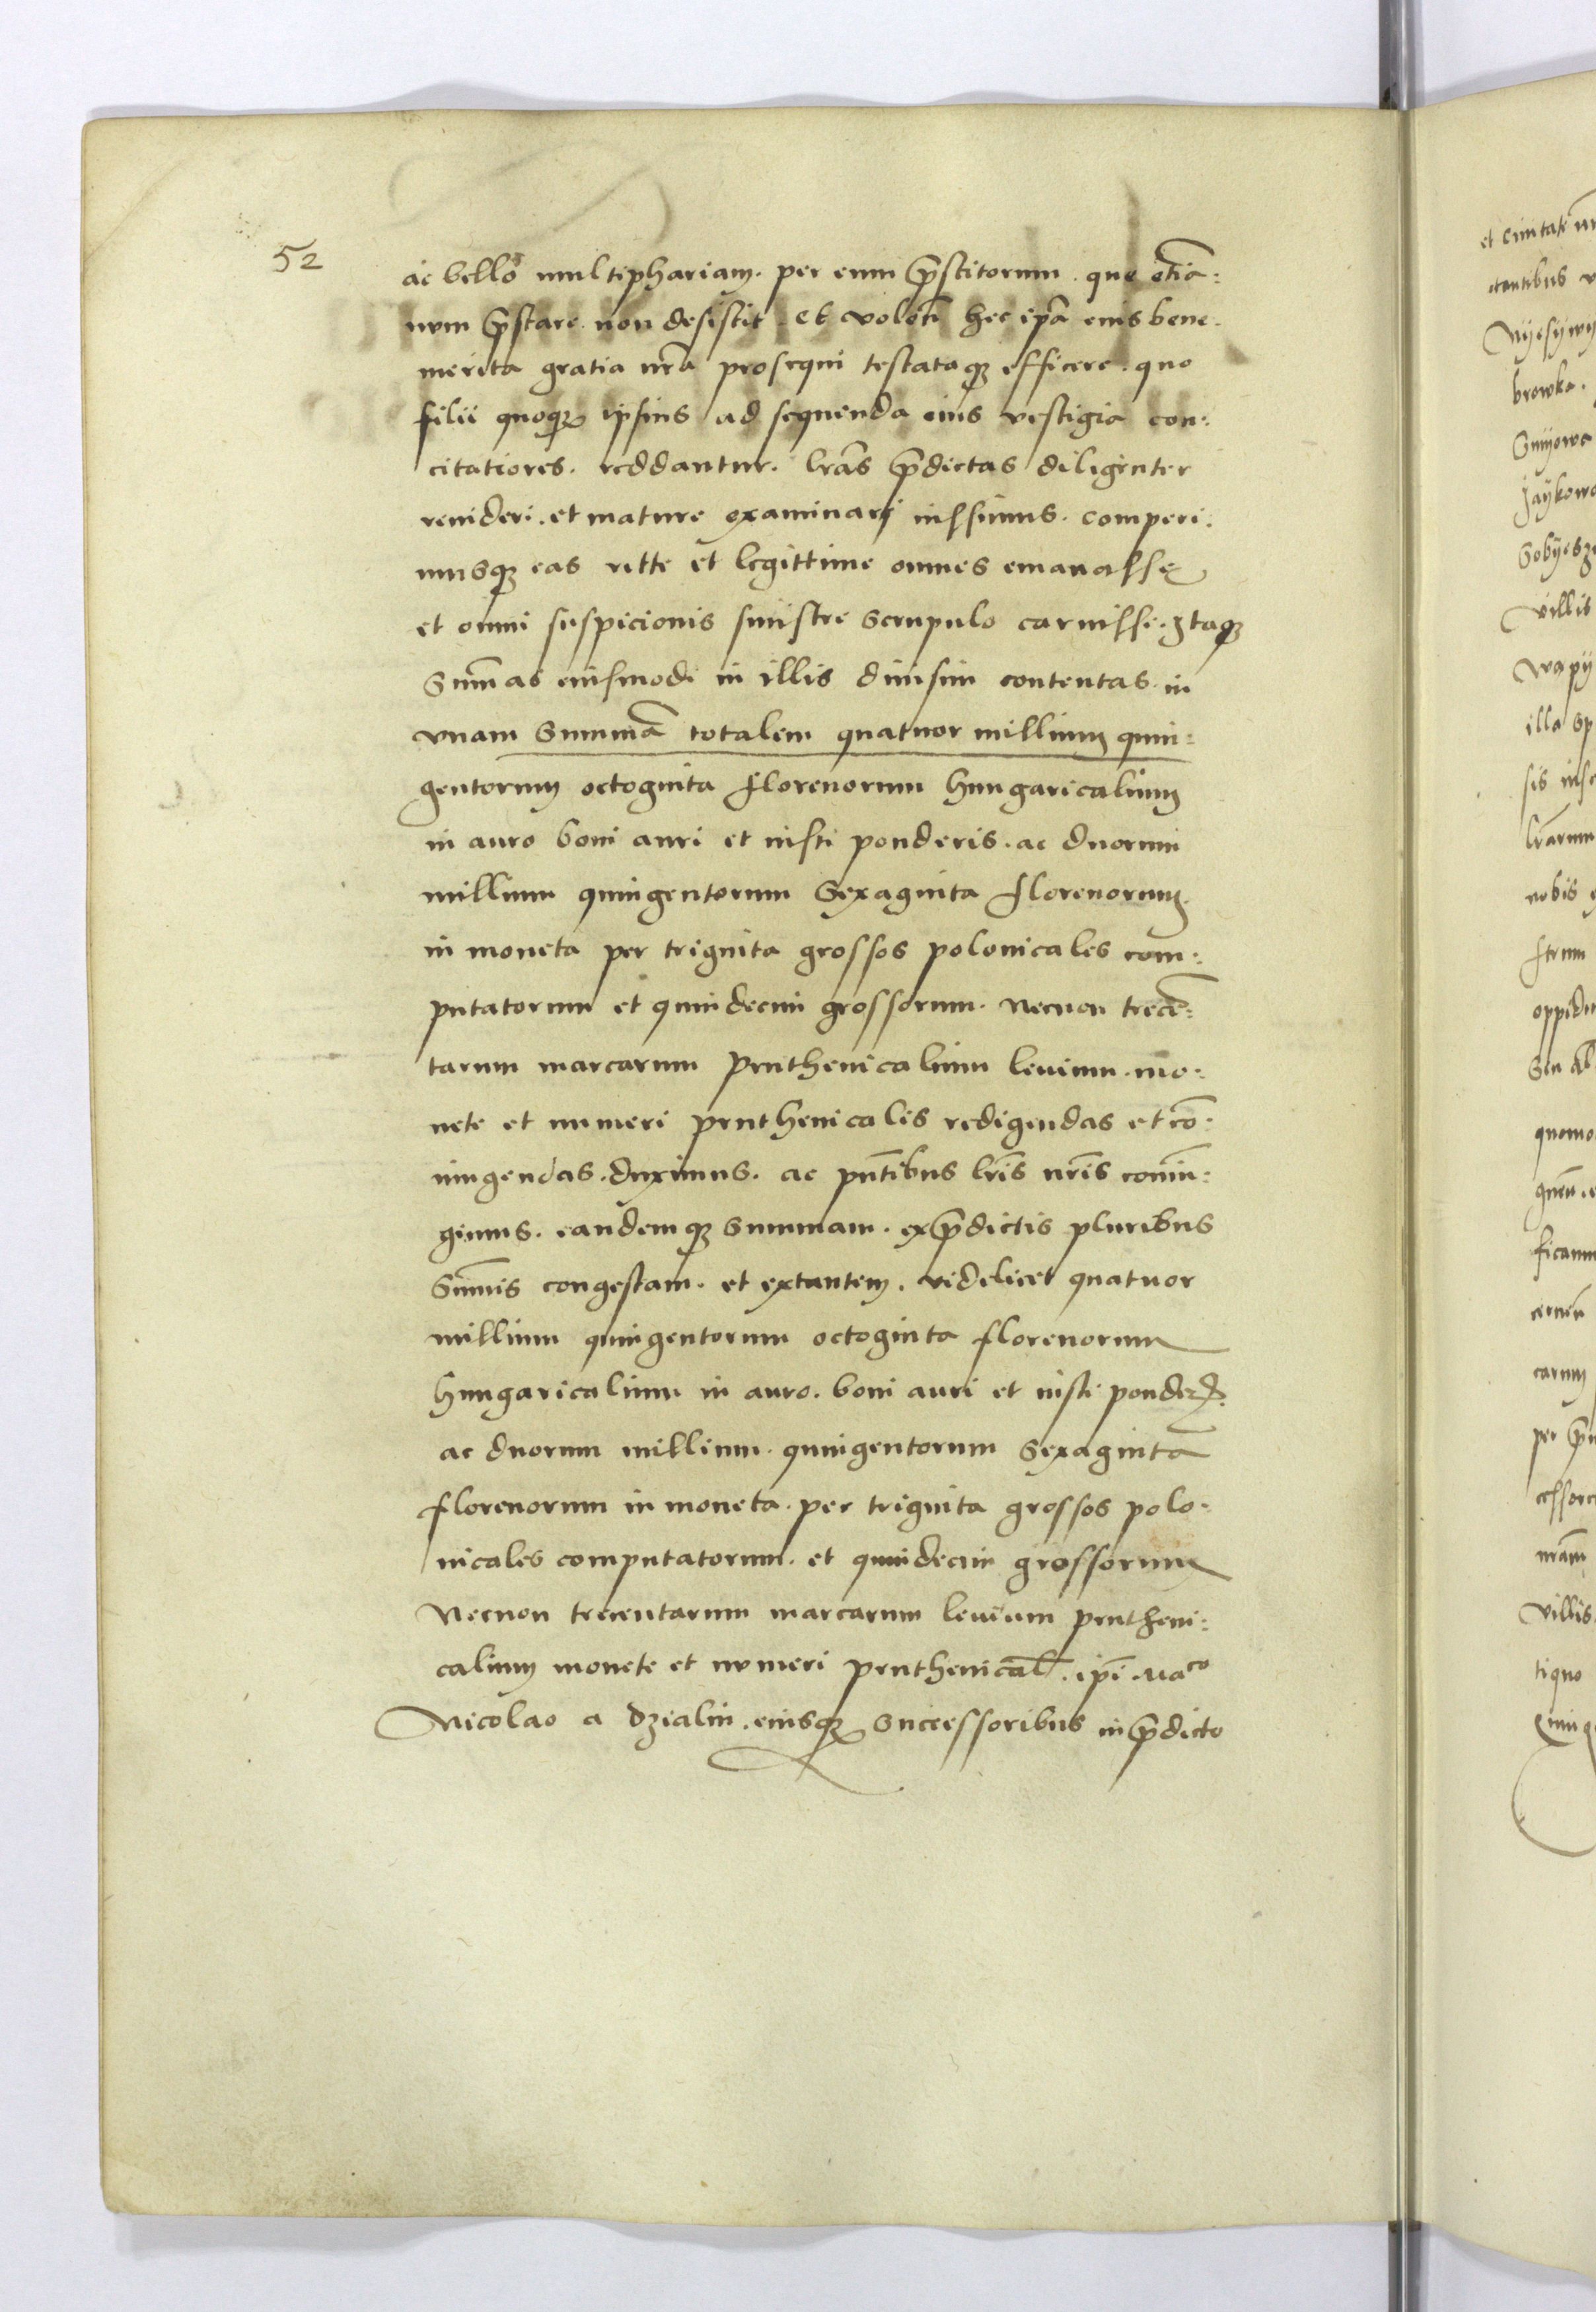 52
ac bello multiphariam. per eum p̃stitorum. que etiã:
num p̃stare non desistit. et volẽt hec ip̃a eius bene-
merita gratia nrã prosequi testataq; efficere. quo
filii quoq; ipsius ad sequenda eius vestigia con:
citatiores. reddantur. lrãs p̃dictas diligenter
revideri. et mature examinari iussimus. comperi:
musq; eas ritte et legittime omnes emanasse
et omni suspicionis sinistre scrupulo caruisse. Itaq;
Sum̃as eiusmodi in illis divisim contentas in
vnam Summã totalem quatuor millium quin:
gentorum octoginta florenorum hungaricalium
in auro boni auri et iusti ponderis. ac duorum
millium quingentorum Sexaginta florenorum
in moneta per triginta grossos polonicales com:
putatorum et quindecim grossorum. necnon trecẽ:
tarum marcarum pruthenicalium levium. mo:
nete et numeri pruthenicalis redigendas et cõ:
iungendas. duximus. ac pñtibus lrĩs nrĩs coniun:
gimus. eandemq; Summam. ex p̃dictis pluribus
Sum̃is congestam. et extantem. videlicet quatuor
millium quingentorum octoginta florenorum
hungaricalium in auro. boni auri et iusti ponder̃.
ac duorum millium. quingentorum Sexaginta
florenorum in moneta. per triginta grossos polo:
nicales computatorum. et quindecim grossorum
Necnon trecentarum marcarum levium prutheni:
calium monete et numeri pruthenical̃. ip̃i. Maco
Nicolao a dzialin. eiusq; Successoribus in p̃dicto
et civitate
villis
illa
nobis
carum
villis
tiquo